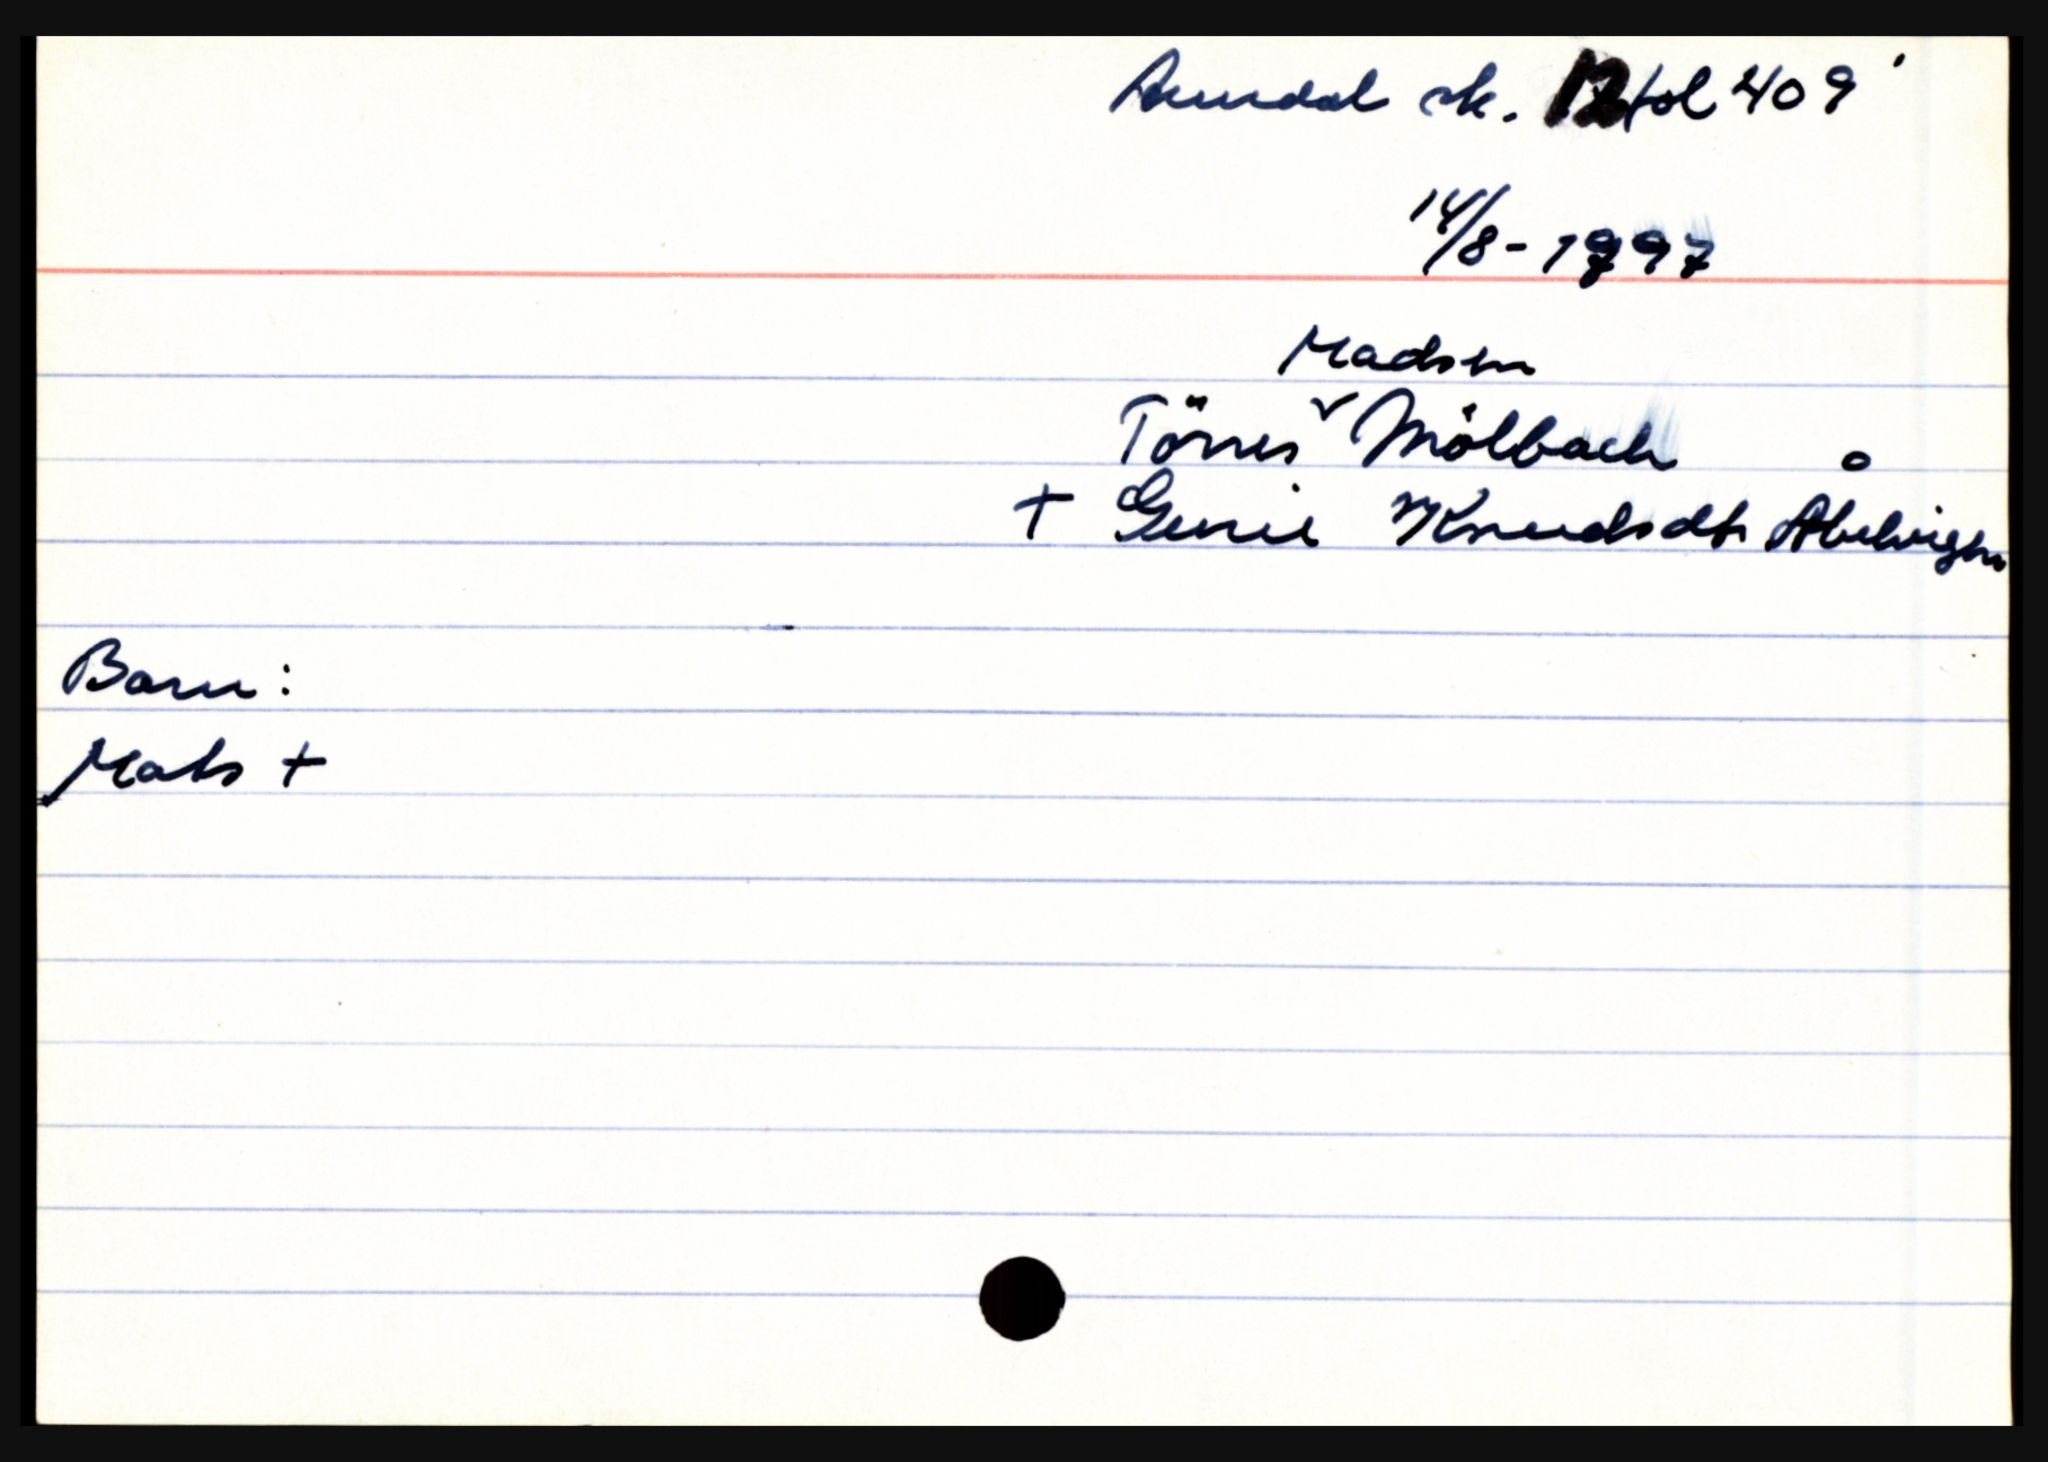 Arendal sk. 12 fol 409
14/8 - 1797
Madsen
Törres v Mölbach o
+ Gunil Knudsdt. Abelvigen
Barn:
Mats +